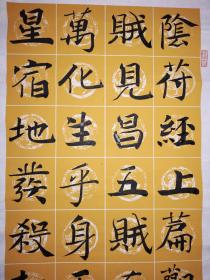 陰苻經上篇
賊見昌五賊
萬化生乎身
星宿地發殺